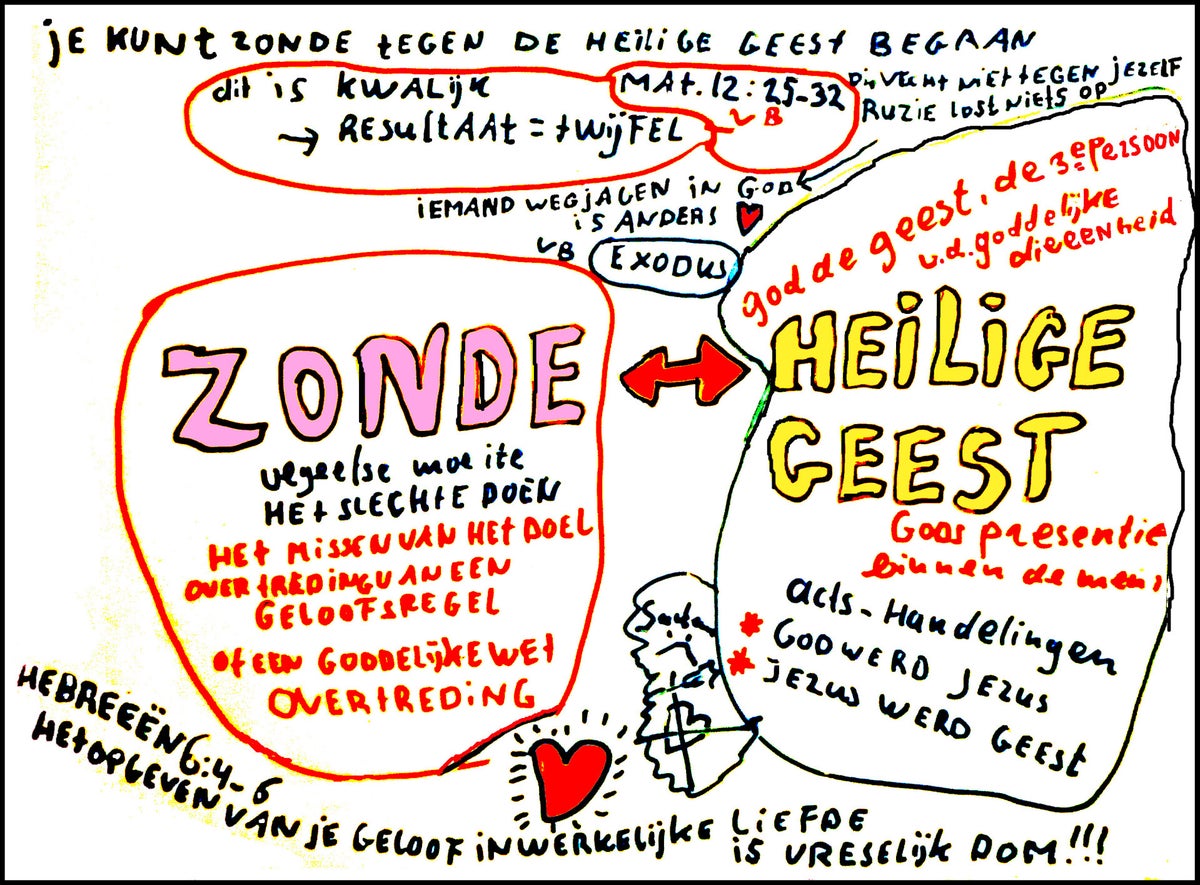 jE KUNt ZONDE tEGEN DE HEiliGE GEESt BEGAAN
dit iS KWALijK
→ RESUltAAt = tWijFEL
MAt. 12 : 25-32
VB
VECHt NiEt tEGEN jEZELF
RUZiE LOSt NiEtS OP
iEMAND WEGJAGEN iN GOD
iS ANDERS
VB
EXODUS
god de geest, de 3e PERSOON
v.d. goddelijke
dieeenheid
ZONDE
HEiLiGE
GEEST
vegeefse moeite
HEt SLECHtE DOEN
HEt MiSSEN VAN HEt DOEL
OVERtREDiNG VAN EEN
GELOOFSREGEL
Of EEN GODDELijKE WEt
OVERtREDiNG
Gods presentie
binnen de mens
Acts - Handelingen
* GOD WERD JEZUS
* JEZUS WERD GEEST
Satan
HEBREEËN 6:4-6
HEt OPGEVEN VAN jE GELOOF iN WERKELijKE LiEFDE
iS VRESELijK DOM!!!